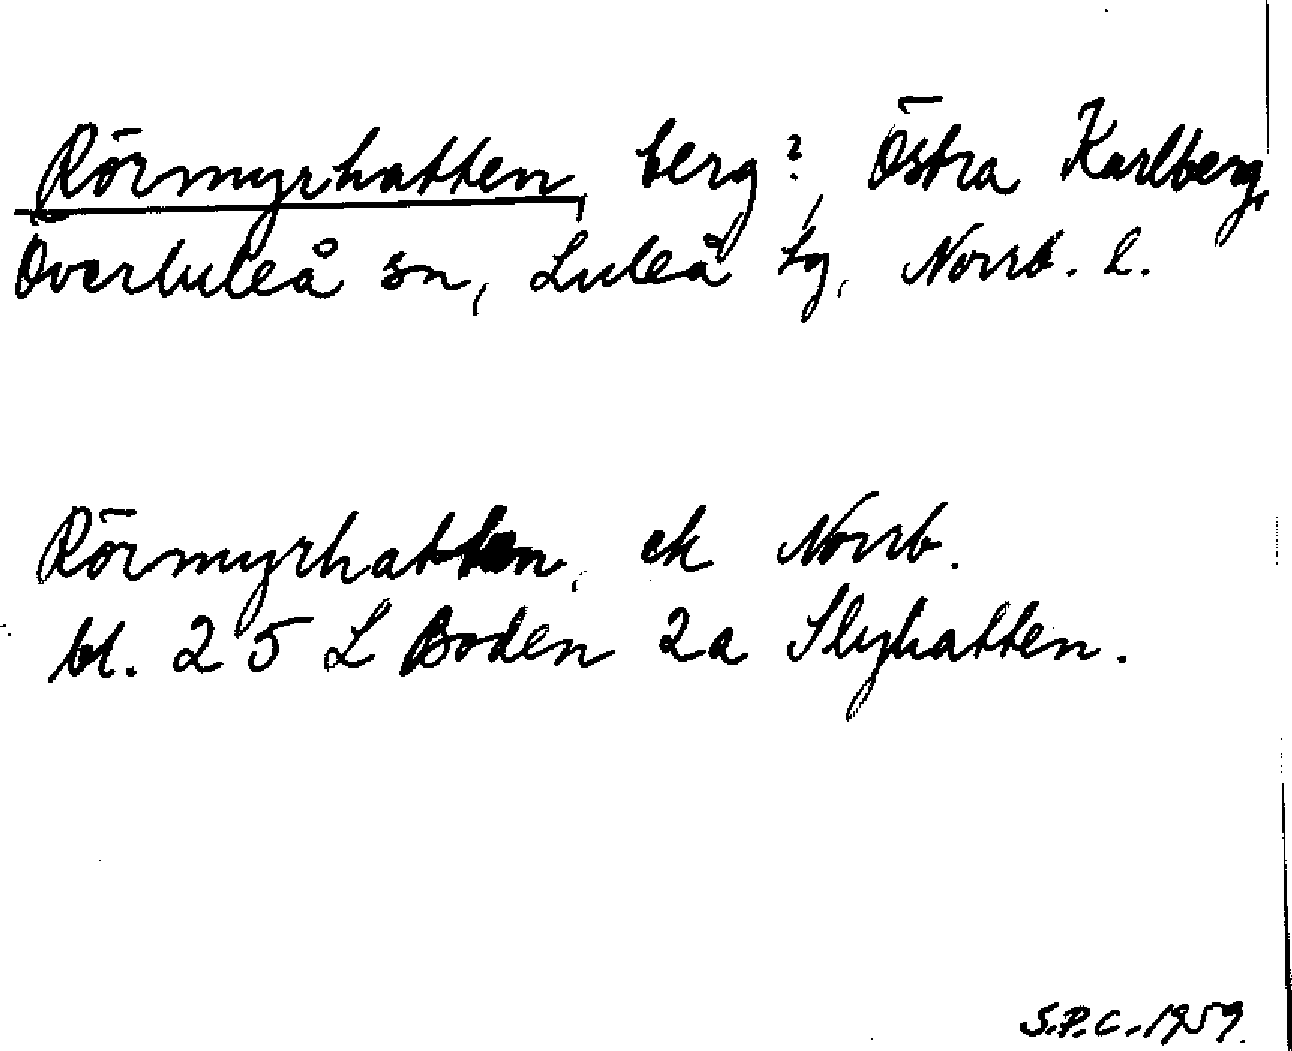 Rörmyrhatten, berg?, Östra Karlberg,
Överluleå sn, Luleå tg, Norrb. l.
Rörmyrhatten, ek Norrb.
bl. 25 L Boden 2a Slyhatten.
S.P.C. 1959.